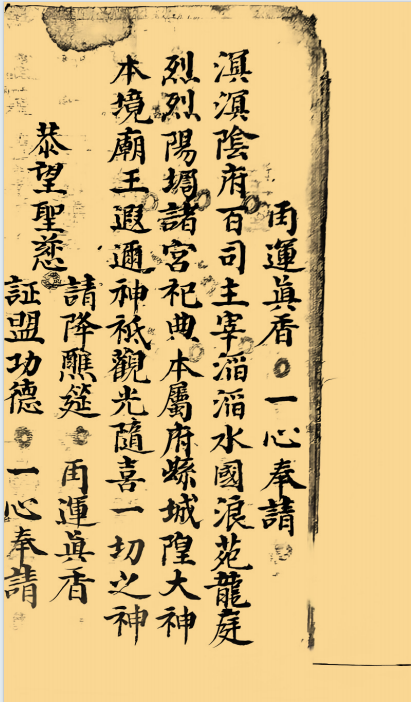 再運眞香 一心奉請
溟溟陰府百司主宰滔滔水國浪苑龍庭
烈烈陽堈諸宮祀典本屬府縣城隍大神
本境廟王遐邇神祇觀光隨喜一切之神
恭望聖慈
請降醮筵 再運眞香
証盟功德 一心奉請